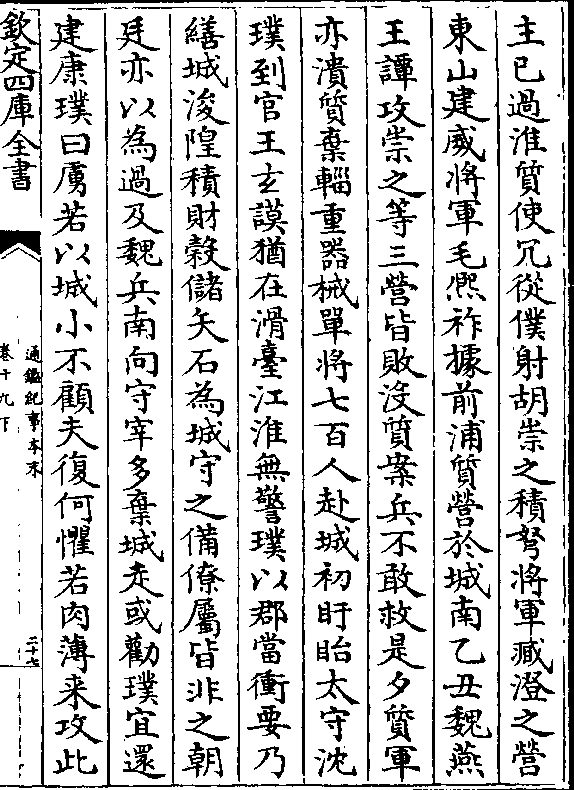 主已過淮質使冗從僕射胡崇之積弩將軍臧澄之營
東山建威將軍毛熈祚據前浦質營於城南乙丑魏燕
王譚攻崇之等三營皆敗没質案兵不敢救是夕質軍
亦潰質棄輜重器械單將七百人赴城初盱眙太守沈
璞到官王玄謨猶在滑臺江淮無警璞以郡當衝要乃
繕城浚隍積財榖儲矢石為城守之備僚屬皆非之朝
廷亦以為過及魏兵南向守宰多棄城走或勸璞宜還
建康璞曰虜若以城小不顧夫復何懼若肉薄来攻此
欽定四庫全書
通鑑紀事本末
卷十九下
二十七